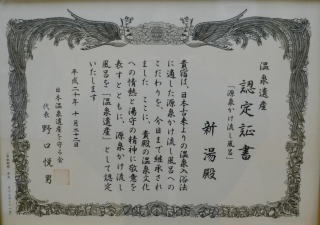 温泉遺産
認定証書
「源泉かけ流し風呂」
新湯殿
貴宿は、日本古来よりの温泉入浴法
に適した源泉かけ流し風呂への
こだわりを、今日まで継承され
ました ここに、貴殿の温泉文化
への情熱と湯守の精神に敬意を
表すとともに、源泉かけ流し
風呂を「温泉遺産」として認定
いたします
平成二十年 十月三十一日
日本温泉遺産を守る会
代表 野口悦男